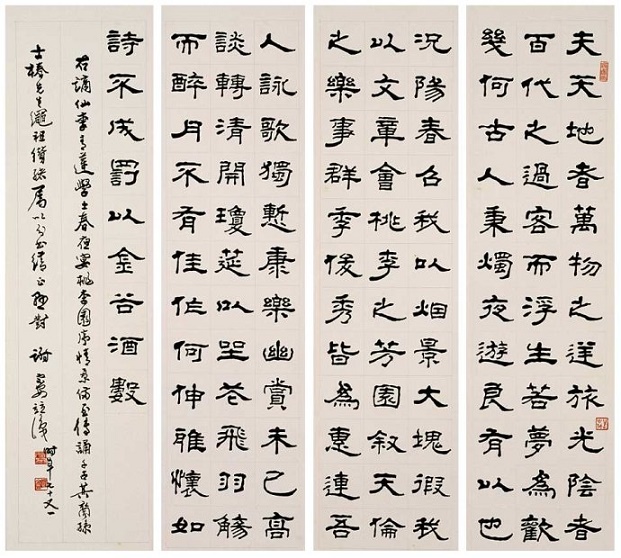 夫天地者萬物之逆旅光陰者
百代之過客而浮生若夢為歡
幾何古人秉燭夜遊良有以也
況陽春召我以烟景大塊假我
以文章會桃李之芳園敘天倫
之樂事群季俊秀皆為惠連吾
人詠歌獨慙康樂幽賞未已高
談轉清開瓊莚以坐花飛羽觴
而醉月不有佳作何伸雅懷如
詩不成罰以金谷酒數
右謫仙李青蓮學士春夜宴桃李園序情景備至傳誦
士椿先生 屬 正 時年九十又一